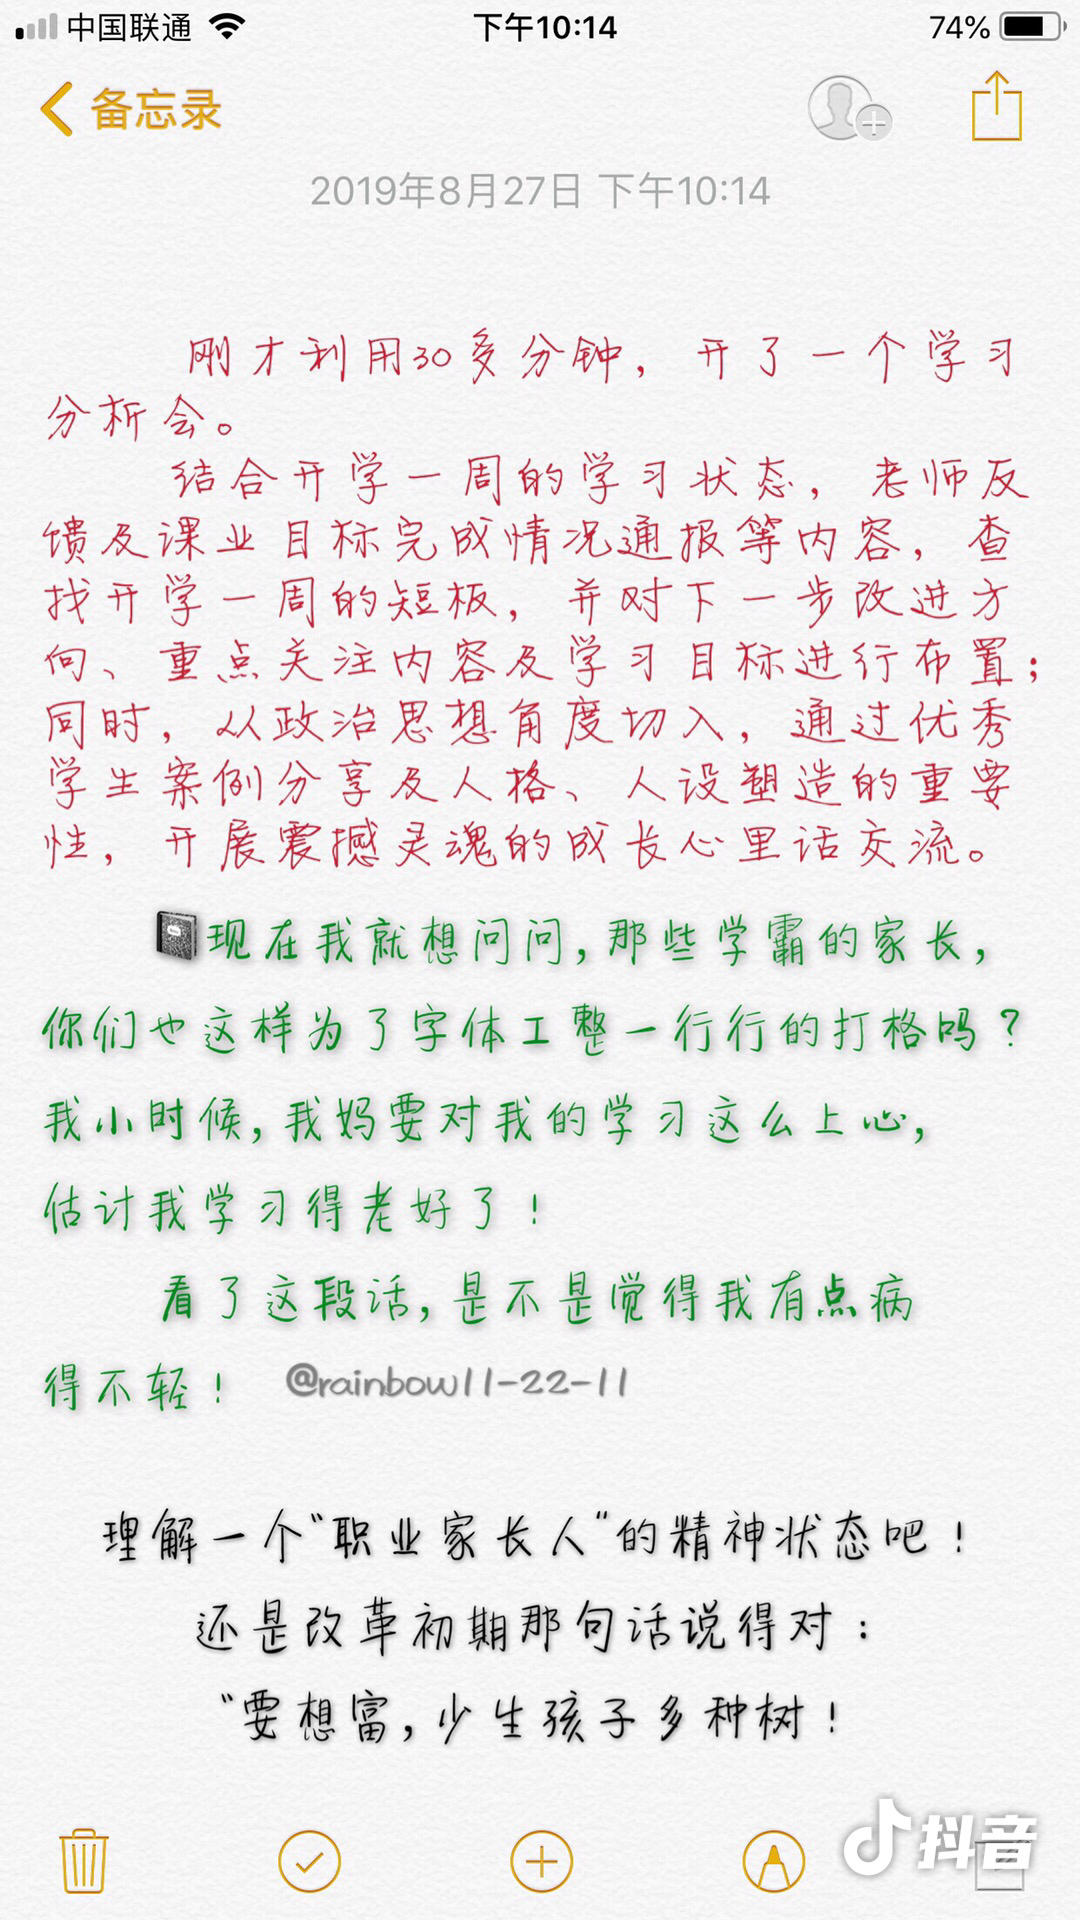 中国联通 下午10:14 74%
备忘录
2019年8月27日 下午10:14
刚才利用30多分钟，开了一个学习
分析会。
结合开学一周的学习状态，老师反
馈及课业目标完成情况通报等内容，查
找开学一周的短板，并对下一步改进方
向、重点关注内容及学习目标进行布置；
同时，从政治思想角度切入，通过优秀
学生案例分享及人格、人设塑造的重要
性，开展震撼灵魂的成长心里话交流。
现在我就想问问，那些学霸的家长，
你们也这样为了字体工整一行行的打格吗？
我小时候，我妈要对我的学习这么上心，
估计我学习得老好了！
看了这段话，是不是觉得我有点病
得不轻！ @rainbow11-22-11
理解一个“职业家长人“的精神状态吧！
还是改革初期那句话说得对：
“要想富，少生孩子多种树！
抖音